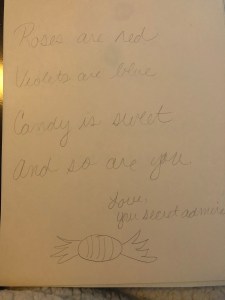 Roses are red
Violets are blue
Candy is sweet
And so are you
Love,
you secret admire